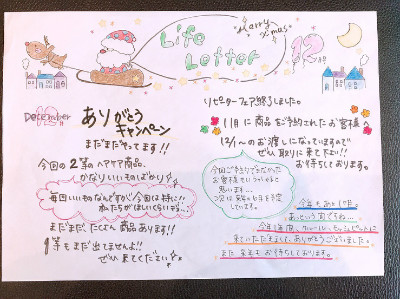 Life Letter
Merry X'mas
12
December
ありがとう
キャンペーン
まだまだやってます!!
今回の2等のヘアケア商品、
かなりいいものばかり
毎回いいものなんですが今回は特に!!
私たちがほしいくらいです…
まだまだたくさん商品あります!!
1等もまだ出てませんよ!!
ぜひ来てください
リピーターフェア終了しました。
11月に商品をご予約されたお客様へ
12/1〜のお渡しになっていますので
ぜひ取りに来て下さい!!
お待ちしております。
今回ご予約できなかった
お客様もいらっしゃると
思います…
次は
を予定
しています。
今年もあと1か月。
あっという間ですね…
今年1年間、
来ていただきまして、ありがとうございました。
また来年もお待ちしております。